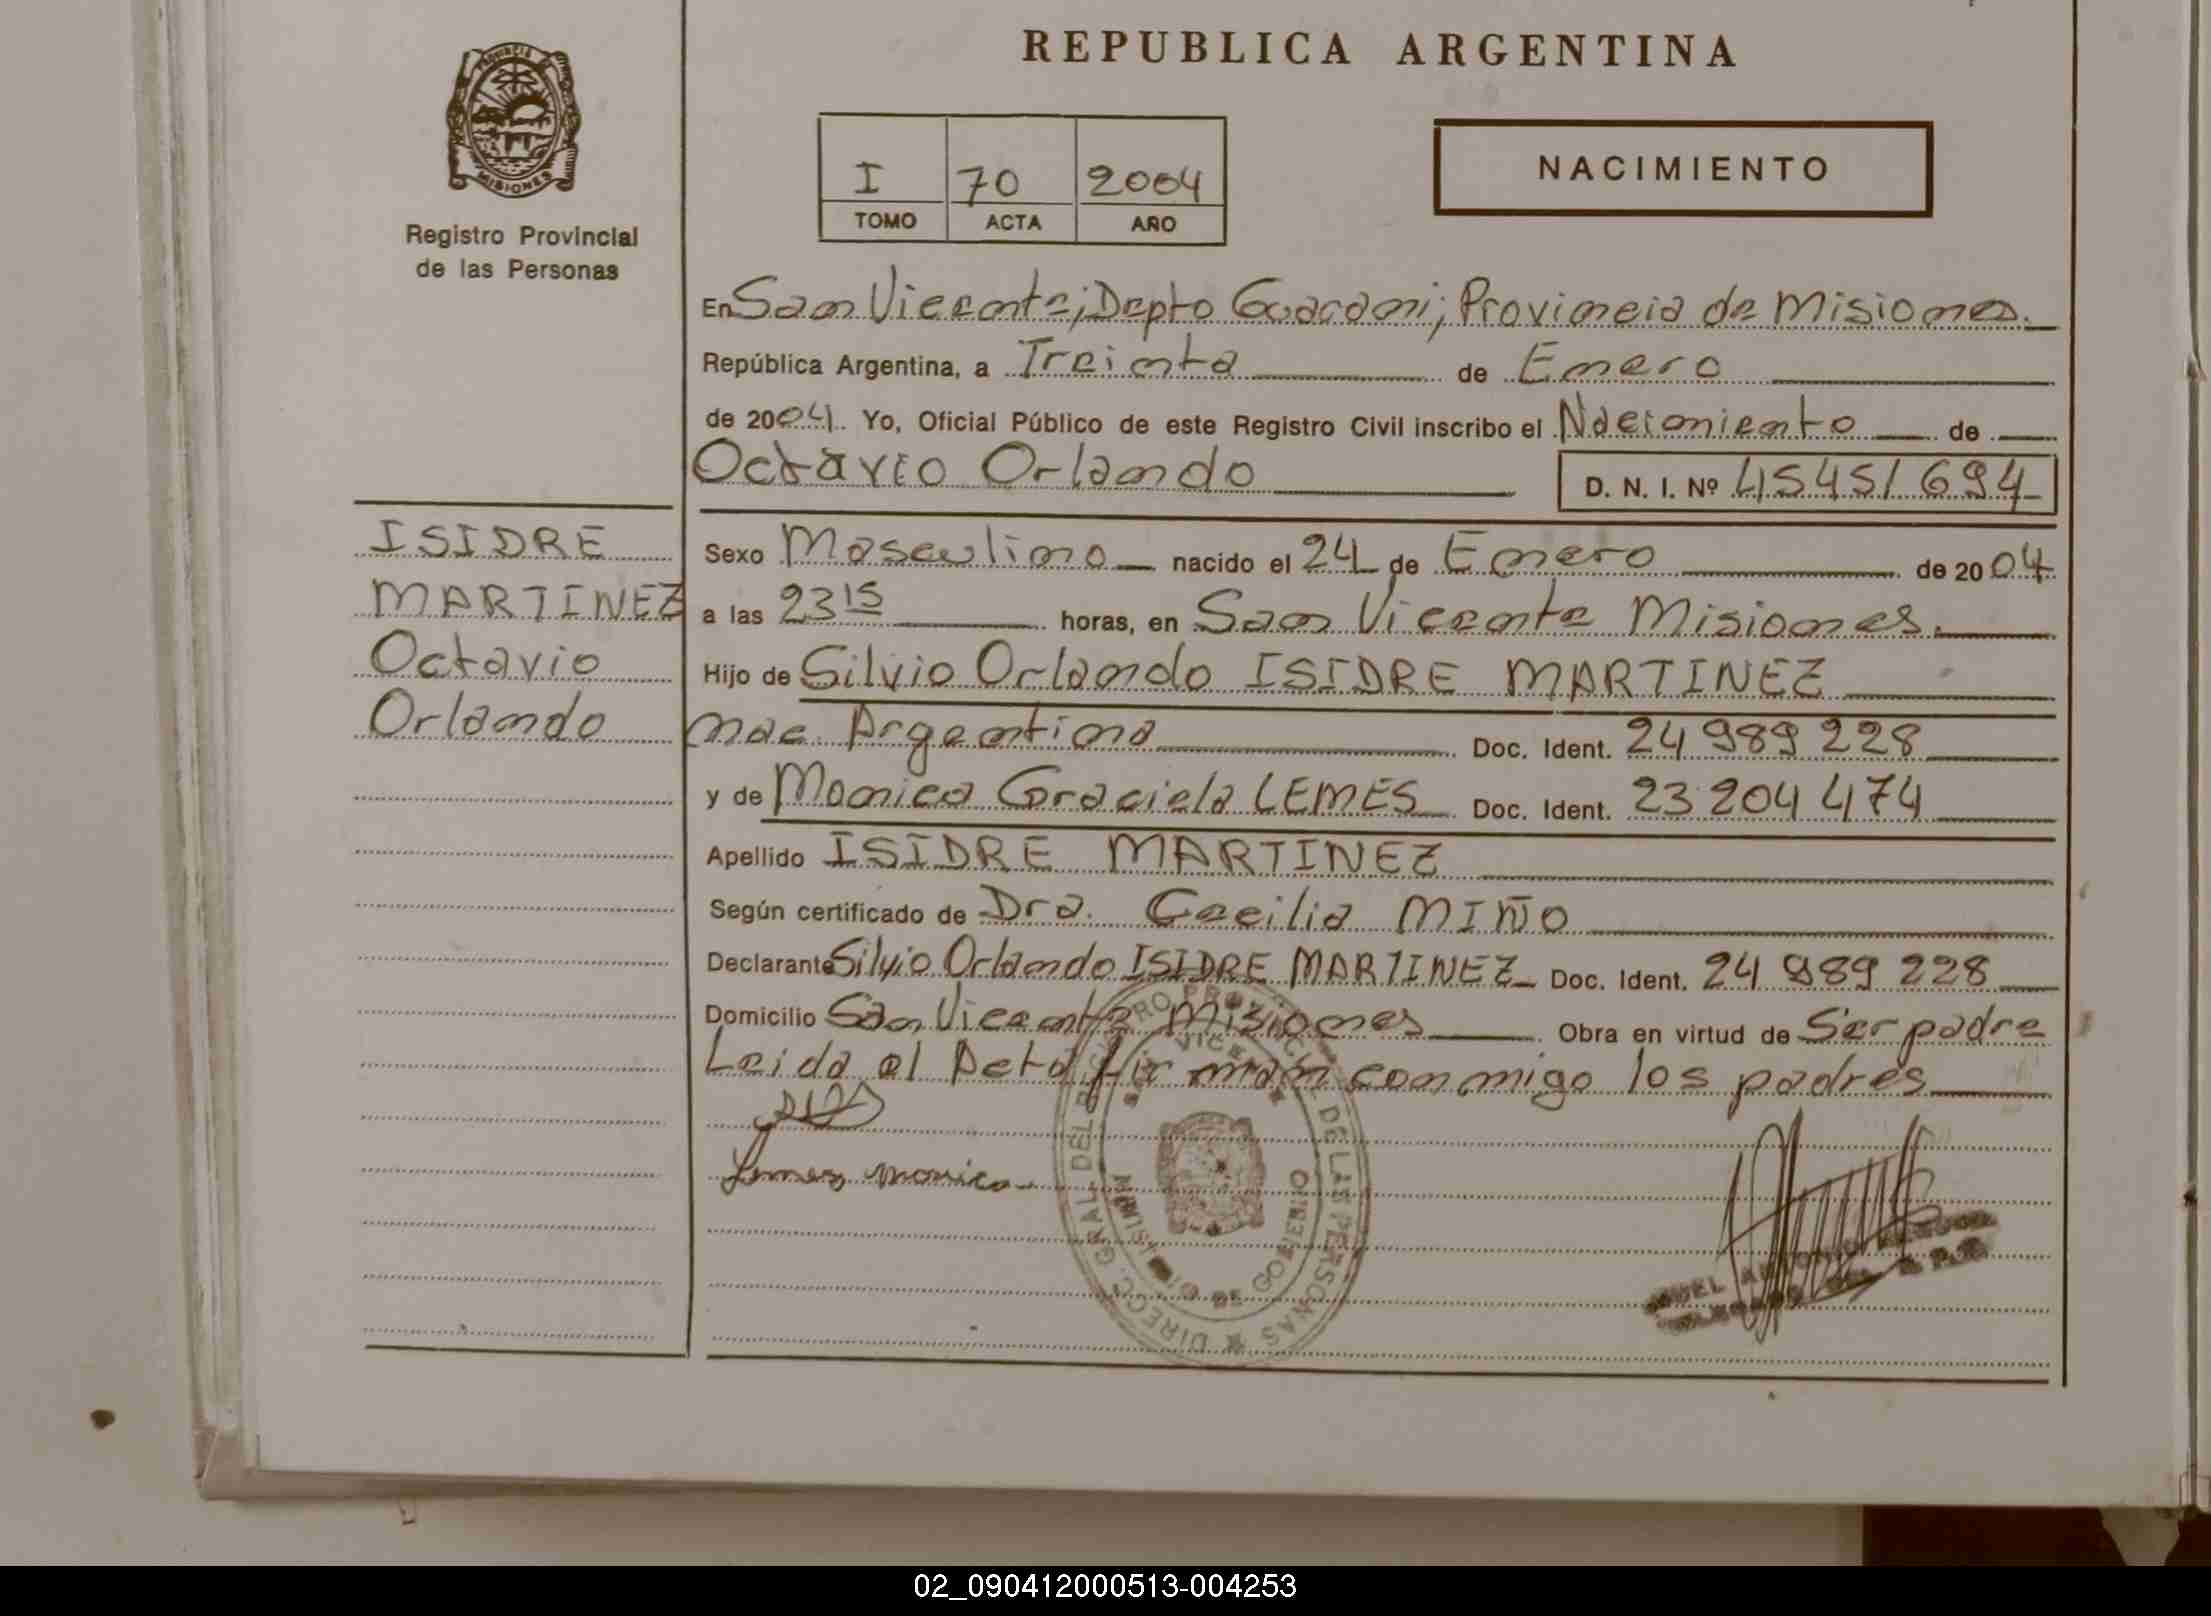 REPUBLICA ARGENTINA
PROVINCIA DE
MISIONES
Registro Provincial
de las Personas
I 70 2004
TOMO ACTA AÑO
NACIMIENTO
En San Vicente; Depto Guarani; Provincia de Misiones.
República Argentina, a Treinta de Enero
de 2004. Yo, Oficial Público de este Registro Civil inscribo el Nacimiento de
Octavio Orlando D. N. I. Nº 45451694
ISIDRE
MARTINEZ
Octavio
Orlando
Sexo Masculino nacido el 24 de Enero de 2004
a las 23 15 horas, en San Vicente Misiones.
Hijo de Silvio Orlando ISIDRE MARTINEZ
nac. Argentina Doc. Ident. 24 989 228
y de Monica Graciela LEMES Doc. Ident. 23 204 474
Apellido ISIDRE MARTINEZ
Según certificado de Dra. Cecilia MIÑO
Declarante Silvio Orlando ISIDRE MARTINEZ Doc. Ident. 24 989 228
Domicilio San Vicente Misiones Obra en virtud de Ser padre
Leida el Acta firman conmigo los padres
Lemes monica
DIRECC. GRAL. DEL REGISTRO PROVINCIAL DE LAS PERSONAS
SAN VICENTE
MINISTERIO DE GOBIERNO
ANTONIO
02_090412000513-004253